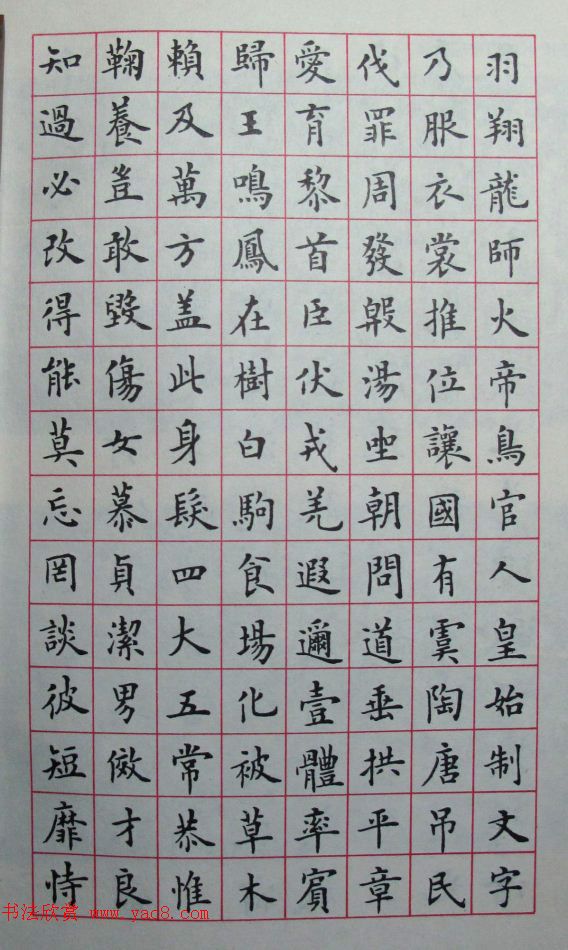 羽翔龍師火帝鳥官人皇始制文字
乃服衣裳推位讓國有虞陶唐吊民
伐罪周發殷湯坐朝問道垂拱平章
愛育黎首臣伏戎羌遐邇壹體率賓
歸王鳴鳳在樹白駒食場化被草木
賴及萬方盖此身髮四大五常恭惟
鞠養豈敢毀傷女慕貞潔男傚才良
知過必改得能莫忘罔談彼短靡恃
书法欣赏 www.yac8.com